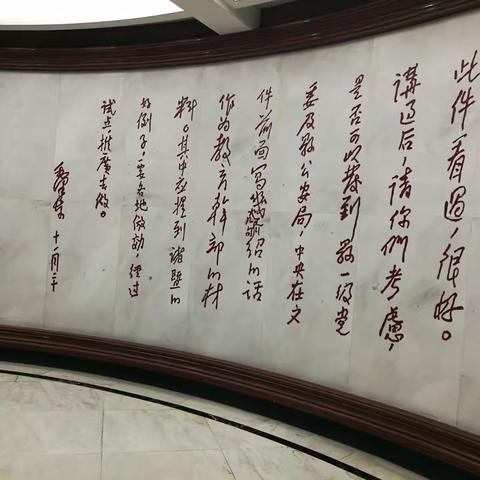 此件看过,很好。
講过后,請你們考慮,
是否可以發到縣一级党
委及縣公安局,中央在文
件前面写幾句介绍的话
作为教育幹部的材
料。其中应提到諸暨的
好例子,要各地仿効,经过
试点,推廣去做。
毛泽东 十一月二十